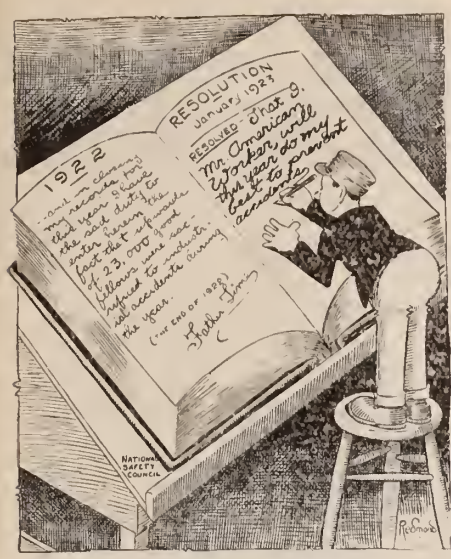 1922
...and in closing
my records for
this year I have
the said duty to
enter herein the
fact that upwards
of 23,000 good
fellows were sac-
rificed to industri-
al accidents during
the year.
(THE END OF 1922)
Father Time
RESOLUTION
January 1923
RESOLVED - That I,
Mr. American
Worker, will
this year do my
best to prevent
accidents
NATIONAL
SAFETY
COUNCIL